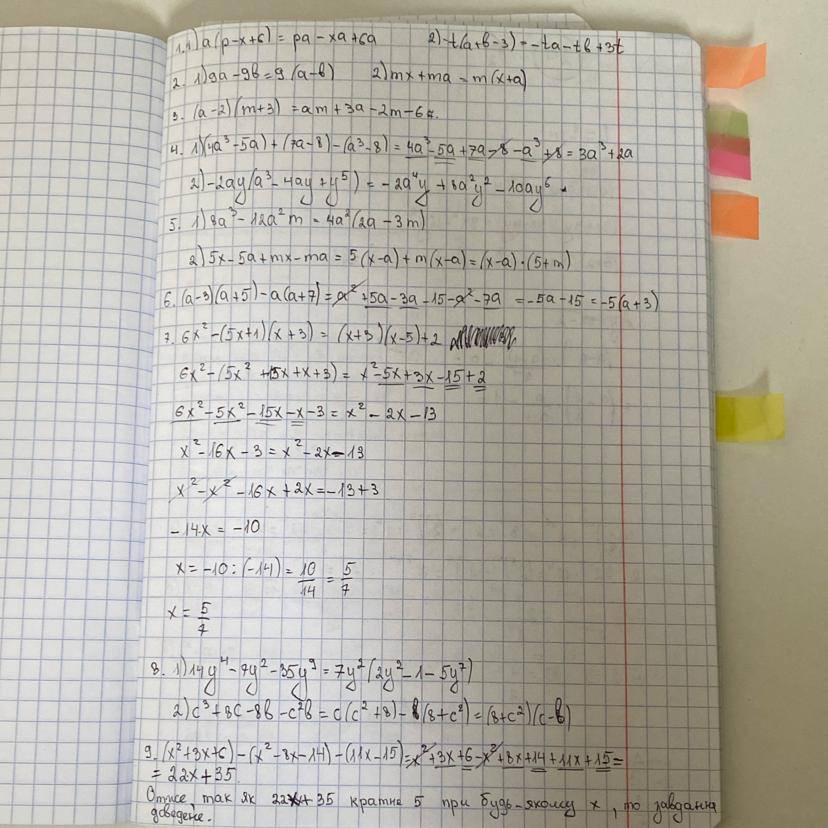 1. 1) a(p-x+6) = pa - xa + 6a 2) -t(a+b-3) = -ta - tb + 3t
2. 1) 9a - 9b = 9(a-b) 2) mx + ma = m(x+a)
3. (a-2)(m+3) = am + 3a - 2m - 6
4. 1) (4a³-5a) + (7a-8) - (a³-8) = 4a³ - 5a + 7a - 8 - a³ + 8 = 3a³ + 2a
2) -2ay(a³ - 4ay + y⁵) = -2a⁴y + 8a²y² - 10ay⁶
5. 1) 8a³ - 12a²m = 4a²(2a - 3m)
2) 5x - 5a + mx - ma = 5(x-a) + m(x-a) = (x-a)·(5+m)
6. (a-3)(a+5) - a(a+7) = a² + 5a - 3a - 15 - a² - 7a = -5a - 15 = -5(a+3)
7. 6x² - (5x+1)(x+3) = (x+3)(x-5) + 2
6x² - (5x² + 15x + x + 3) = x² - 5x + 3x - 15 + 2
6x² - 5x² - 15x - x - 3 = x² - 2x - 13
x² - 16x - 3 = x² - 2x - 13
x² - x² - 16x + 2x = -13 + 3
-14x = -10
x = -10 : (-14) = 10/14 = 5/7
x = 5/7
8. 1) 14y⁴ - 7y² - 35y⁹ = 7y²(2y² - 1 - 5y⁷)
2) c³ + 8c - 8b - c²b = c(c² + 8) - b(8 + c²) = (8 + c²)(c-b)
9. (x²+3x+6) - (x²-8x-14) - (11x-15) = x² + 3x + 6 - x² + 8x + 14 + 11x + 15 =
= 22x + 35
Отже, так як 22x + 35 кратне 5 при будь-якому x, то завдання
доведене.